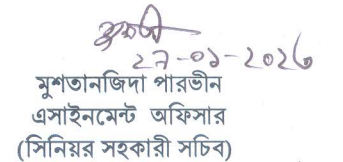 ২৭-০১-২০২৬
মুশতানজিদা পারভীন
এসাইনমেন্ট অফিসার
(সিনিয়র সহকারী সচিব)